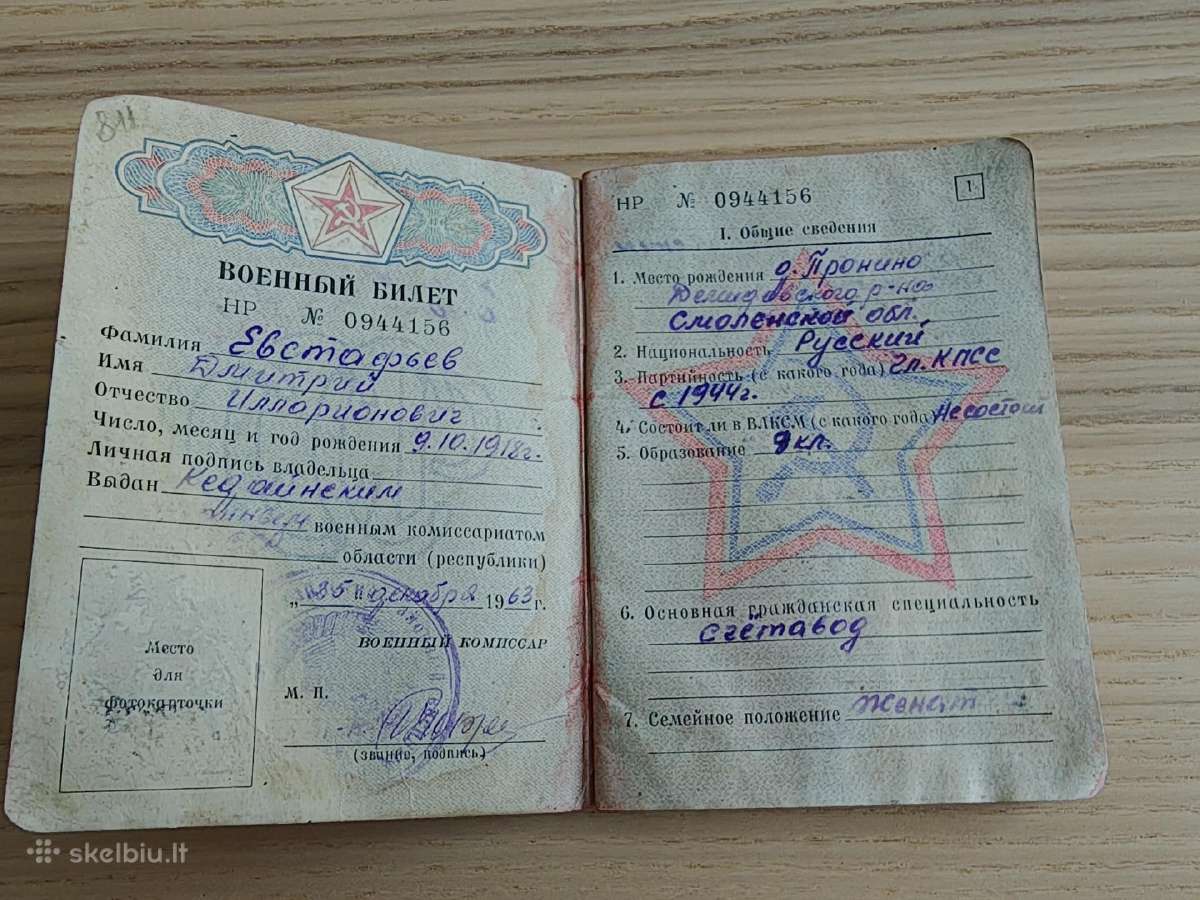 811
ВОЕННЫЙ БИЛЕТ
НР № 0944156
Фамилия Евстафьев
Имя Дмитрий
Отчество Илларионович
Число, месяц и год рождения 9.10.1918г.
Личная подпись владельца
Выдан Кедайнским
военным комиссариатом
области (республики)
„25" декабря 1963 г.
ВОЕННЫЙ КОМИССАР
Место
для
фотокарточки
М. П.
(звание, подпись)
НР № 0944156
1
I. Общие сведения
1. Место рождения д. Пронино
Демидовского р-на
Смоленской обл.
2. Национальность Русский
3. Партийность (с какого года) Чл. КПСС
с 1944г.
4. Состоит ли в ВЛКСМ (с какого года) Не состоит
5. Образование 9 кл.
6. Основная гражданская специальность
счётавод
7. Семейное положение Женат
skelbiu.lt